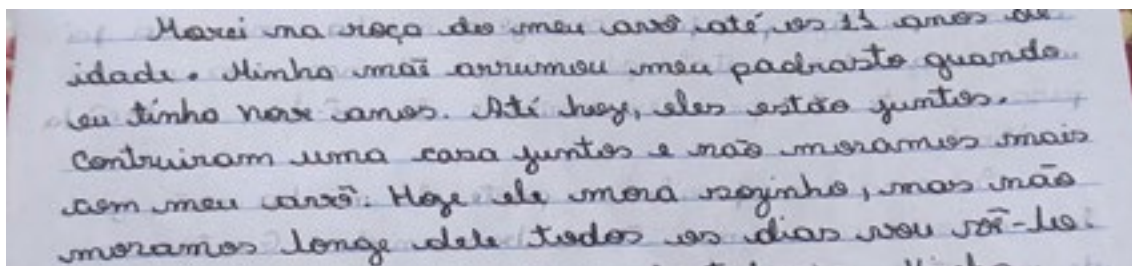 Morei na roça do meu avô até os 11 anos de
idade. Minha mãe arrumou meu padrasto quando
eu tinha nove anos. Até hoje, eles estão juntos.
Contruiram uma casa juntos e não moramos mais
com meu avô. Hoje ele mora sozinho, mas não
moramos longe dele todos os dias vou vê-lo.